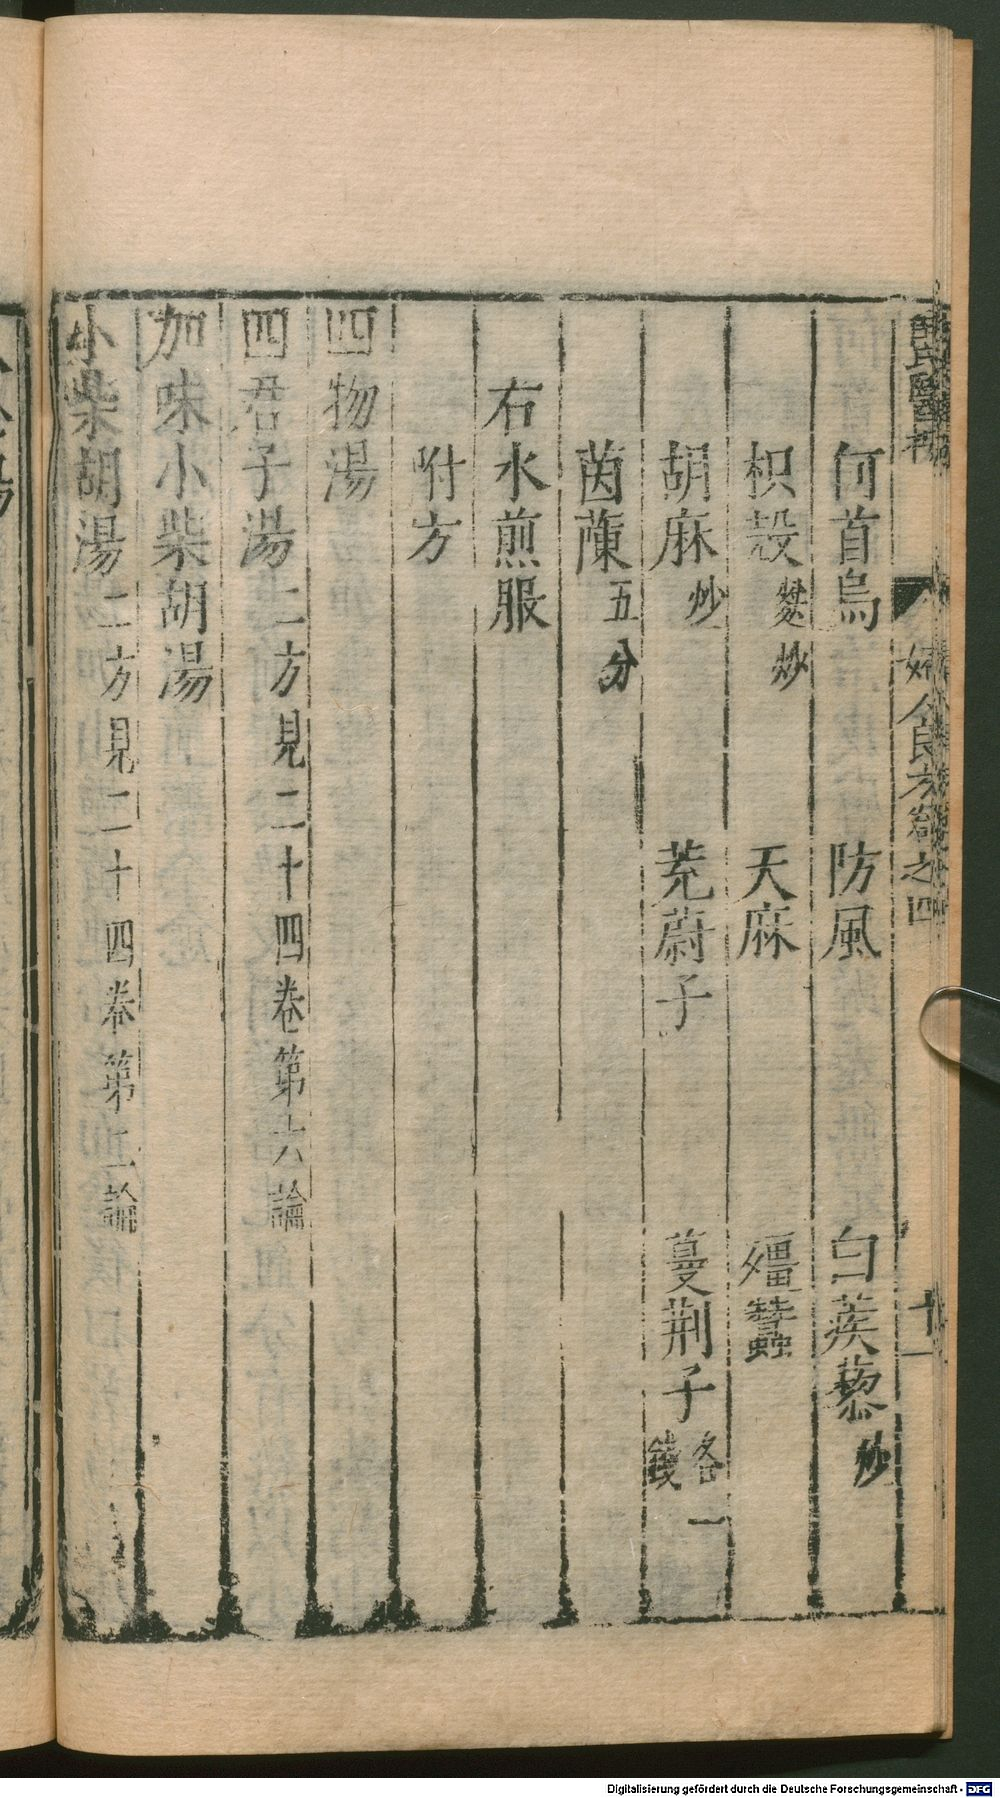 婦人良方 卷之四 十一
何首烏 防風 白蒺藜炒
枳殼麩炒 天麻 殭蠶
胡麻炒 茺蔚子 蔓荆子各一錢
茵蔯五分
右水煎服
附方
四物湯
四君子湯二方見二十四卷第六論
加味小柴胡湯
小柴胡湯二方見二十四卷第二論
Digitalisierung gefördert durch die Deutsche Forschungsgemeinschaft - DFG